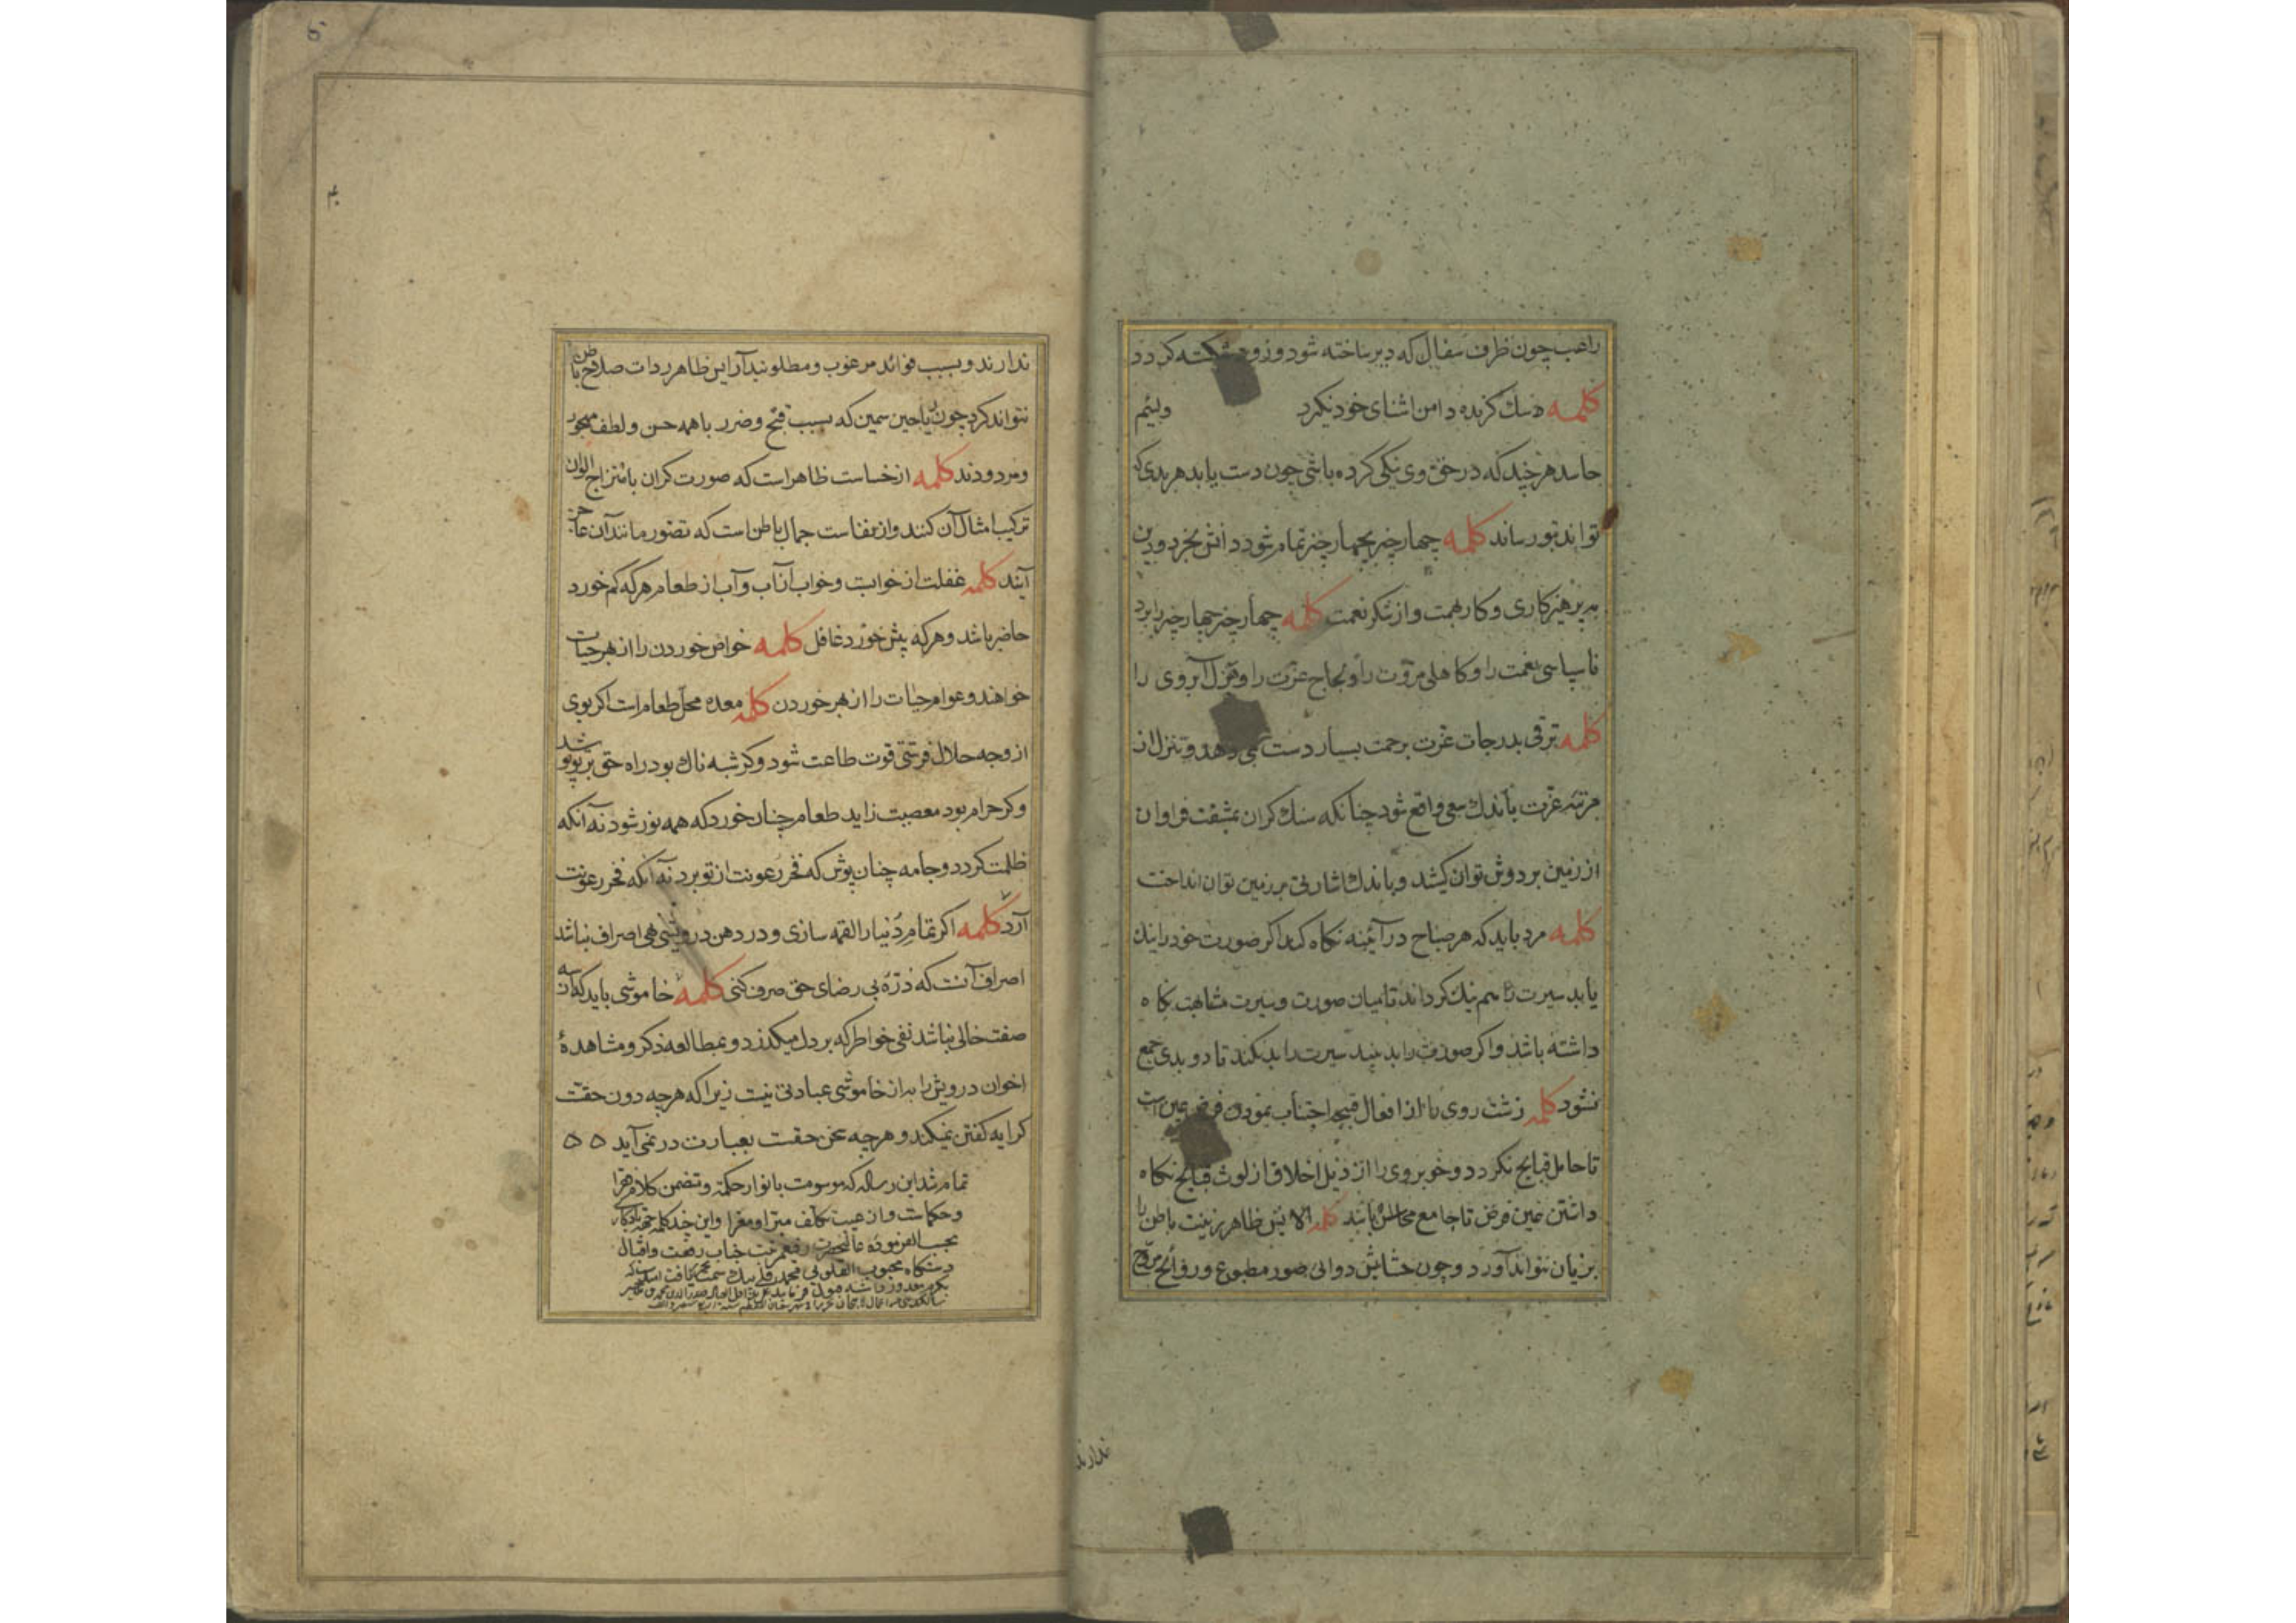 راغب چون ظرف سفال که دیر ساخته شود و زود شکسته کردد
کلمه سک کزنده دامن اشنای خود نکیرد ولئیم
حاسد هرچند که در حق وی نیکی کرده باشی چون دست یابد هر بدی که
تواند بتو رساند کلمه چهار چیز بچهار چیز تمام شود دانش بخرد و دین
به پرهیزکاری و کار بهمت و از شکر نعمت کلمه چهار چیز چهار چیز را برد
ناسپاسی نعمت را و کاهلی مروت را و لجاج عزت را و هزل آبروی را
کلمه ترقی بدرجات عزت بزحمت بسیار دست می دهد و تنزل از
مرتبه عزت باندک سعی واقع شود چنانکه سنک کران بمشقت فراوان
از زمین بر دوش توان کشید و باندک اشارتی بر زمین توان انداخت
کلمه مرد باید که هر صباح در آئینه نکاه کند اکر صورت خود را نیک
یابد سیرت را هم نیک کرداند تا میان صورت و سیرت مشابهت نکاه
داشته باشد و اکر صورت را بد بیند سیرت را بد نکند تا دو بدی جمع
نشود کلمه زشت روی را از افعال قبیحه اجتناب نمودن فرض عین است
تا حامل قبایح نکردد و خوبروی را از ذیل اخلاق از لوث قبایح نکاه
داشتن عین فرض تا جامع محاسن باشد کلمه الایش ظاهر بزینت باطن را
بزیان نتواند آورد و چون حشایش دوائی صور مطبوع و روائح
ندارند
ندارند و بسبب فوائد مرغوب و مطلوبند آرایش ظاهر ذات صلاح باطن
نتواند کرد چون ریاحین سمین که بسبب قبح و ضرر با همه حسن و لطف مهجور
و مردودند کلمه از خساست ظاهر است که صورت کران بامتزاج الوان
ترکیب امثال آن کنند و از نفاست جمال باطن است که تصور مانند آن عاجز
آیند کلمه غفلت از خوابست و خواب از آب و آب از طعام هر که کم خورد
حاضر باشد و هر که بیش خورد غافل کلمه خواص خوردن را از بهر حیات
خواهند و عوام حیات را از بهر خوردن کلمه معده محل طعام است اکر بوی
از وجه حلال فرستی قوت طاعت شود و کر شبه ناک بود راه حق بر تو پوشد
و کر حرام بود معصیت زاید طعام چنان خور که همه نور شود نه آنکه
ظلمت کردد و جامه چنان پوش که فخر رعونت از تو برد نه آنکه فخر رعونت
آرد کلمه اکر تمام دنیا را لقمه سازی و در دهن درویشی نهی اصراف نباشد
اصراف آنست که ذره بی رضای حق صرف کنی کلمه خاموشی باید که از سه
صفت خالی نباشد نفی خواطر که بر دل میکذرد و بمطالعه ذکر و مشاهدهٔ
اخوان درویش را به از خاموشی عبادتی نیست زیرا که هرچه دون حقست
کرایه کفتن نمیکند و هرچه عین حقست بعبارت در نمی آید
تمام شد این رساله که موسومست بانوار حکمة و متضمن کلام
و حکمات و از عیب تکلف مبرا و معرا و این چند کلمه جهة یادکار
بحسب الفرموده عالیحضرت رفیع مرتبت جناب رفعت و اقبال
دستکاه محبوب القلوبی